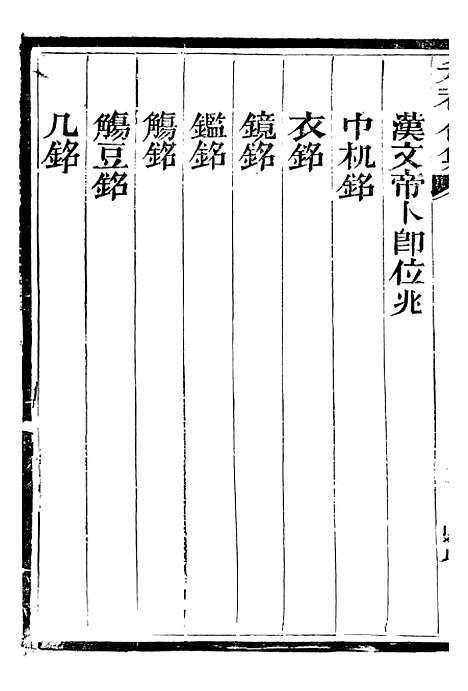 漢文帝卜卽位兆
巾机銘
衣銘
鏡銘
鑑銘
觴銘
觴豆銘
几銘